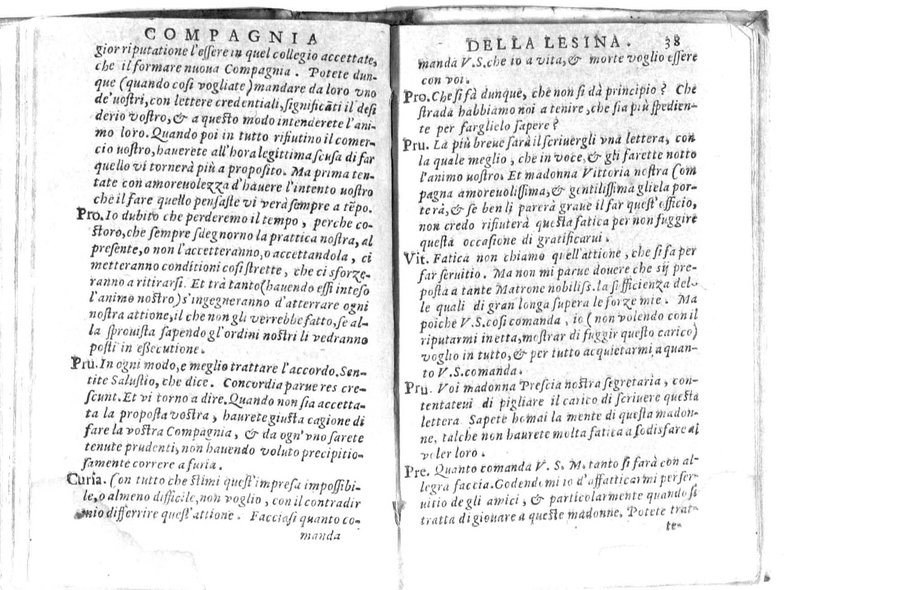 COMPAGNIA
gior riputatione l'essere in quel collegio accettate,
che il formare nuoua Compagnia. Potete dun-
que (quando cosi vogliate) mandare da loro vno
de'uostri, con lettere credentiali, significãti il desi
derio vostro, & a questo modo intenderete l'ani-
mo loro. Quando poi in tutto rifiutino il comer-
cio uostro, hauerete all'hora legittima scusa di far
quello vi tornerà più a proposito. Ma prima ten-
tate con amoreuolezza d'hauere l'intento uostro
che il fare quello pensaste vi verà sempre a tẽpo.
Pro. Io dubito che perderemo il tempo, perche co-
storo, che sempre sdegnorno la prattica nostra, al
presente, o non l'accetteranno, o accettandola, ci
metteranno conditioni cosi strette, che ci sforze-
ranno a ritirarsi. Et trà tanto (hauendo essi inteso
l'animo nostro) s'ingegneranno d'atterrare ogni
nostra attione, il che non gli verrebbe fatto, se al-
la sprouista sapendo gl'ordini nostri li vedranno
posti in essecutione.
Pru. In ogni modo, e meglio trattare l'accordo. Sen-
tite Salustio, che dice. Concordia paruæ res cre-
scunt. Et vi torno a dire. Quando non sia accetta-
ta la proposta vostra, haurete giusta cagione di
fare la vostra Compagnia, & da ogn'vno sarete
tenute prudenti, non hauendo voluto precipitio-
samente correre a furia.
Curia. Con tutto che stimi quest'impresa impossibi-
le, o almeno difficile, non voglio, con il contradir
mio differrire quest'attione. Facciasi quanto co-
manda
DELLA LESINA. 38
manda V.S. che io a vita, & morte voglio essere
con voi.
Pro. Che si fà dunque, che non si dà principio? Che
strada habbiamo noi a tenire, che sia più spedien-
te per farglielo sapere?
Pru. La più breue sarà il scriuergli vna lettera, con
la quale meglio, che in voce, & gli farette notto
l'animo uostro. Et madonna Vittoria nostra Com
pagna amoreuolissima, & gentilissima gliela por-
terà, & se ben li parerà graue il far quest'efficio,
non credo rifiuterà questa fatica per non fuggire
questa occasione di gratificarui.
Vit. Fatica non chiamo quell'attione, che si fa per
far seruitio. Ma non mi parue douere che sij pre-
posta a tante Matrone nobiliss. la sifficienza del-
le quali di gran longa supera le forze mie. Ma
poiche V.S. cosi comanda, io (non volendo con il
riputarmi inetta, mostrar di fuggir questo carico)
voglio in tutto, & per tutto acquietarmi a quan-
to V.S. comanda.
Pru. Voi madonna Prescia nostra segretaria, con-
tentateui di pigliare il carico di scriuere questa
lettera. Sapete homai la mente di questa madon-
ne, talche non haurete molta fatica a sodisfare al
voler loro.
Pre. Quanto comanda V. S. M. tanto si farà con al-
legra faccia. Godendomi io d'affatticarmi per ser-
uitio degli amici, & particolarmente quando si
tratta di giouare a queste madonne. Potete trat-
te-